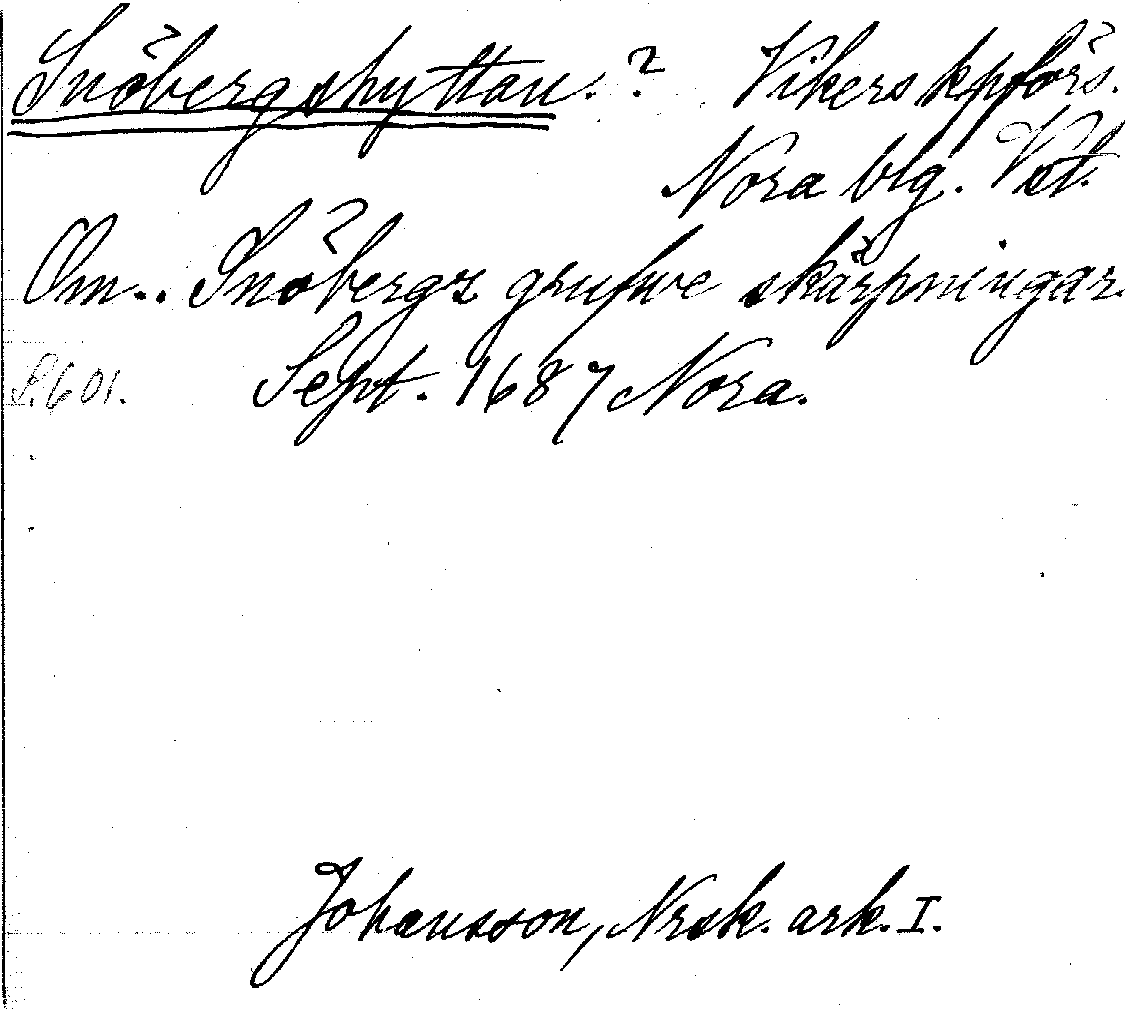 Snöbergshyttan.? Vikers kpförs.
Nora blg. Vstl.
Om.. Snöbergz grufwe skärpningar.
S. 601. Sept. 1687 Nora.
Johansson, Nrsk. ark. I.